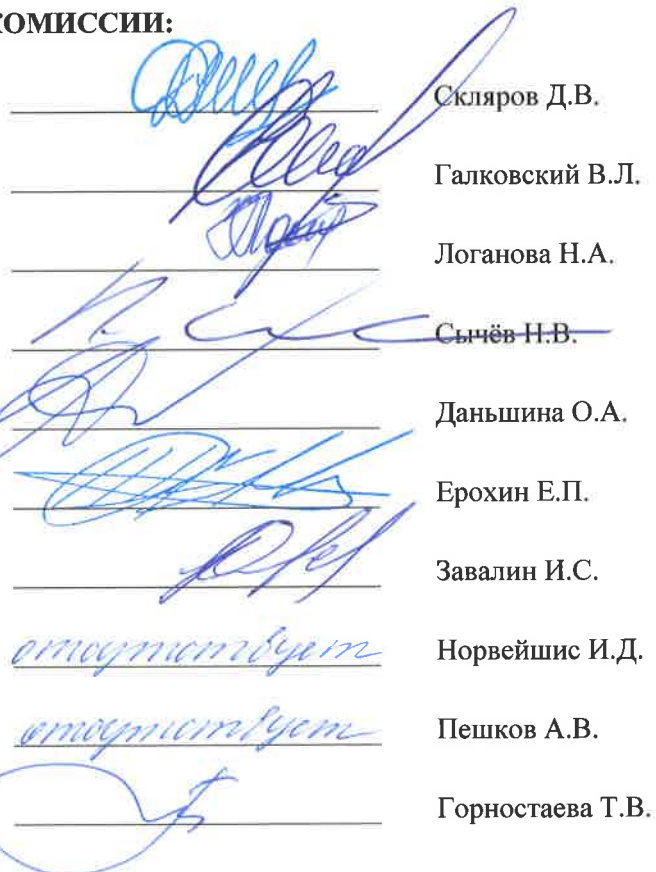 КОМИССИИ:
Скляров Д.В.
Галковский В.Л.
Логанова Н.А.
Сычёв Н.В.
Даньшина О.А.
Ерохин Е.П.
Завалин И.С.
отсутствует Норвейшис И.Д.
отсутствует Пешков А.В.
Горностаева Т.В.